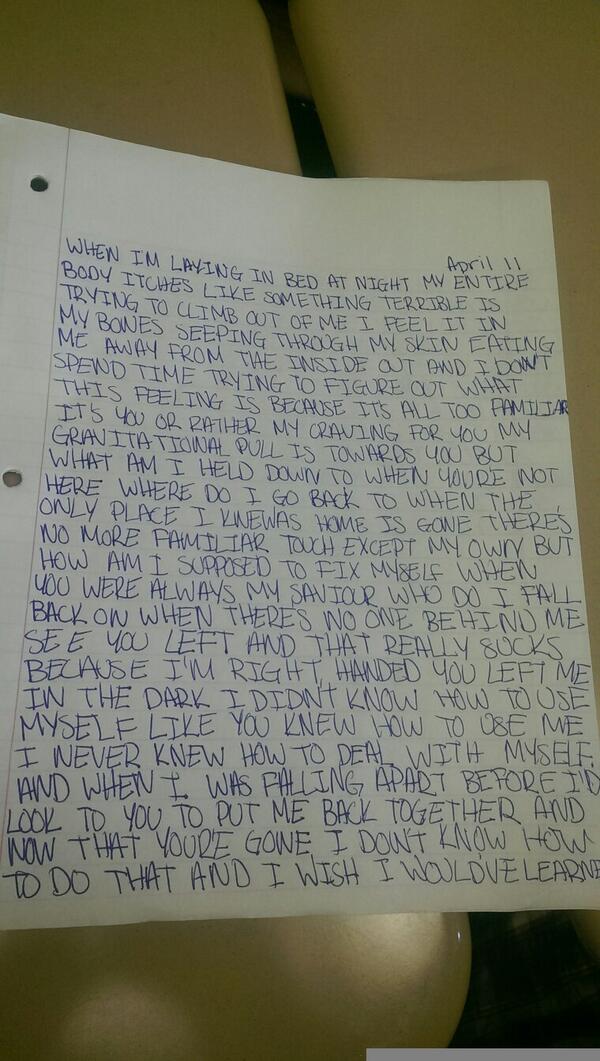 April 11
WHEN I'M LAYING IN BED AT NIGHT MY ENTIRE
BODY ITCHES LIKE SOMETHING TERRIBLE IS
TRYING TO CLIMB OUT OF ME I FEEL IT IN
MY BONES SEEPING THROUGH MY SKIN EATING
ME AWAY FROM THE INSIDE OUT AND I DON'T
SPEND TIME TRYING TO FIGURE OUT WHAT
THIS FEELING IS BECAUSE IT'S ALL TOO FAMILIAR
IT'S YOU OR RATHER MY CRAVING FOR YOU MY
GRAVITATIONAL PULL IS TOWARDS YOU BUT
WHAT AM I HELD DOWN TO WHEN YOU'RE NOT
HERE WHERE DO I GO BACK TO WHEN THE
ONLY PLACE I KNEWAS HOME IS GONE THERE'S
NO MORE FAMILIAR TOUCH EXCEPT MY OWN BUT
HOW AM I SUPPOSED TO FIX MYSELF WHEN
YOU WERE ALWAYS MY SAVIOUR WHO DO I FALL
BACK ON WHEN THERE'S NO ONE BEHIND ME
SEE YOU LEFT AND THAT REALLY SUCKS
BECAUSE I'M RIGHT HANDED YOU LEFT ME
IN THE DARK I DIDN'T KNOW HOW TO USE
MYSELF LIKE YOU KNEW HOW TO USE ME
I NEVER KNEW HOW TO DEAL WITH MYSELF
AND WHEN I WAS FALLING APART BEFORE I'D
LOOK TO YOU TO PUT ME BACK TOGETHER AND
NOW THAT YOU'RE GONE I DON'T KNOW HOW
TO DO THAT AND I WISH I WOULD'VE LEARNE